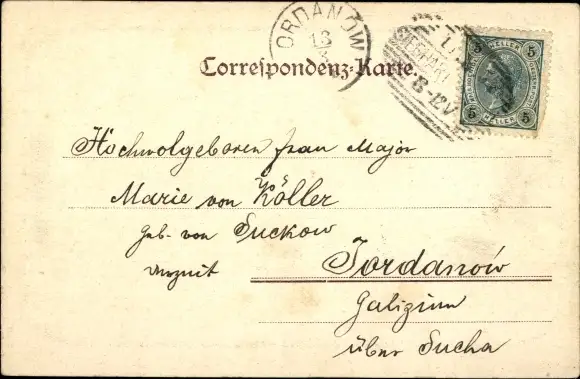 ORDANÓW
13
Correspondenz-Karte.
8-12V
5 HELLER 5
5 HELLER 5
Hochwolgeboren frau Major
Marie von Köller
geb. von Suckow
Jordanów
Galizien
über Sucha